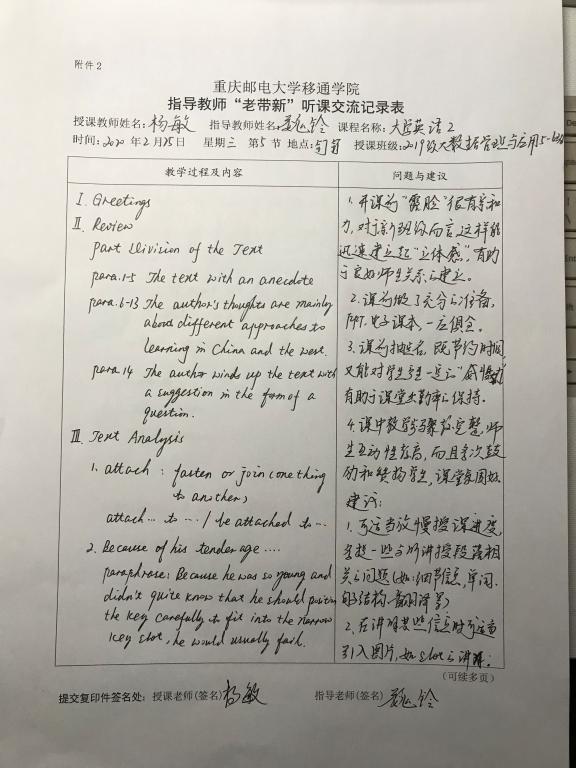 附件2
重庆邮电大学移通学院
指导教师“老带新”听课交流记录表
授课教师姓名:杨敏 指导教师姓名: 课程名称:大学英语2
时间:2020年2月25日 星期三 第5节 地点:钉钉 授课班级:2019级大数据管理与应用5-6班
教学过程及内容
I. Greetings
II. Review
part Division of the Text
para.1-5 The text with an anecdote
para.6-13 The author's thoughts are mainly
about different approaches to
learning in China and the west.
para.14 The author winds up the text with
a suggestion in the form of a
question.
III. Text Analysis
1. attach : fasten or join one thing
to another;
attach … to … / be attached to …
2. Because of his tender age ….
paraphrase: Because he was so young and
didn't quite know that he should position
the key carefully to fit into the narrow
key slot, he would usually fail.
问题与建议
1. 开课前“露脸”很有亲和
力,对于新班级而言,这样能
迅速建立起“立体感”,有助
于良好师生关系之建立。
2. 课前做了充分之准备,
PPT、电子课本,一应俱全。
3. 课前抽点名,既节约时间,
又能对学生呈一定之“威慑力”
有助于课堂出勤率之保持。
4. 课中教学步骤较完整,师
生互动性较高,而且多次鼓
励和赞扬学生,课堂氛围好
建议:
1. 可适当放慢授课进度,
多提一些与所讲授段落相
关之问题(如:细节信息、单词、
句子结构、翻译等)
2. 在讲解某些信息时可适当
引入图片,如slot之讲解;
(可续多页)
提交复印件签名处:授课老师(签名)杨敏 指导老师(签名)